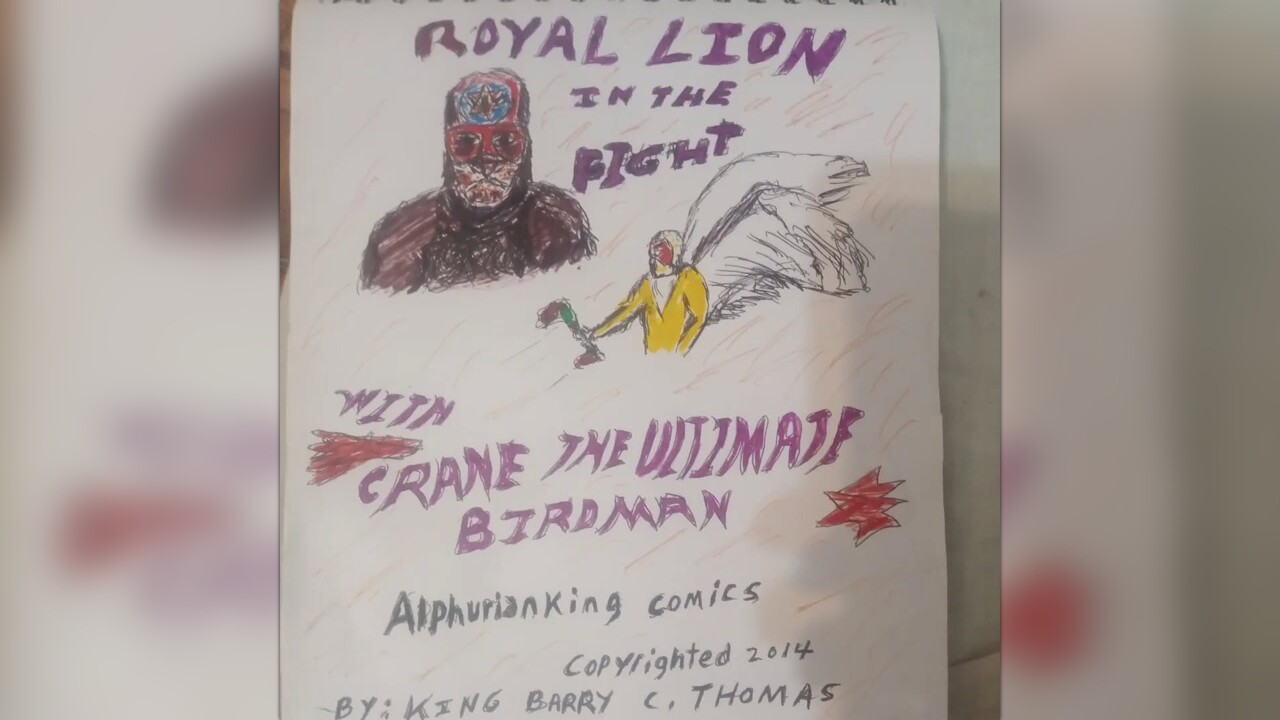 ROYAL LION
IN THE
FIGHT
WITH
CRANE THE ULTIMATE
BIRDMAN
Alphurianking comics
Copyrighted 2014
BY: KING BARRY C. THOMAS